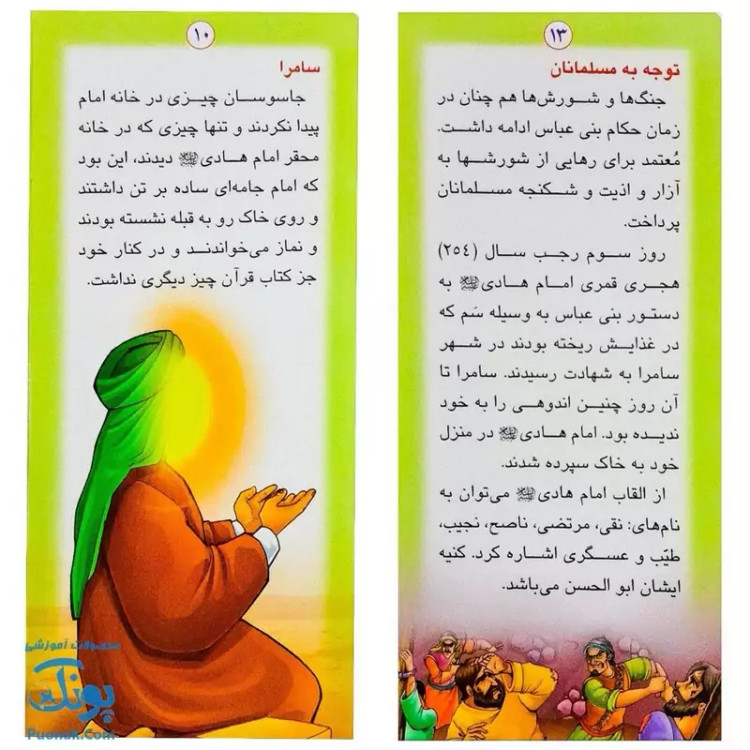 ۱۰
سامرا
جاسوسان چیزی در خانه امام
پیدا نکردند و تنها چیزی که در خانه
محقر امام هادی دیدند، این بود
که امام جامه‌ای ساده بر تن داشتند
و روی خاک رو به قبله نشسته بودند
و نماز می‌خواندند و در کنار خود
جز کتاب قرآن چیز دیگری نداشت.
محصولات آموزشی
پونک
Puonak.Com
۱۳
توجه به مسلمانان
جنگ‌ها و شورش‌ها هم چنان در
زمان حکام بنی عباس ادامه داشت.
مُعتمد برای رهایی از شورشها به
آزار و اذیت و شکنجه مسلمانان
پرداخت.
روز سوم رجب سال (۲۵٤)
هجری قمری امام هادی به
دستور بنی عباس به وسیله سَم که
در غذایش ریخته بودند در شهر
سامرا به شهادت رسیدند. سامرا تا
آن روز چنین اندوهی را به خود
ندیده بود. امام هادی در منزل
خود به خاک سپرده شدند.
از القاب امام هادی می‌توان به
نام‌های: نقی، مرتضی، ناصح، نجیب،
طیّب و عسگری اشاره کرد. کنیه
ایشان ابو الحسن می‌باشد.